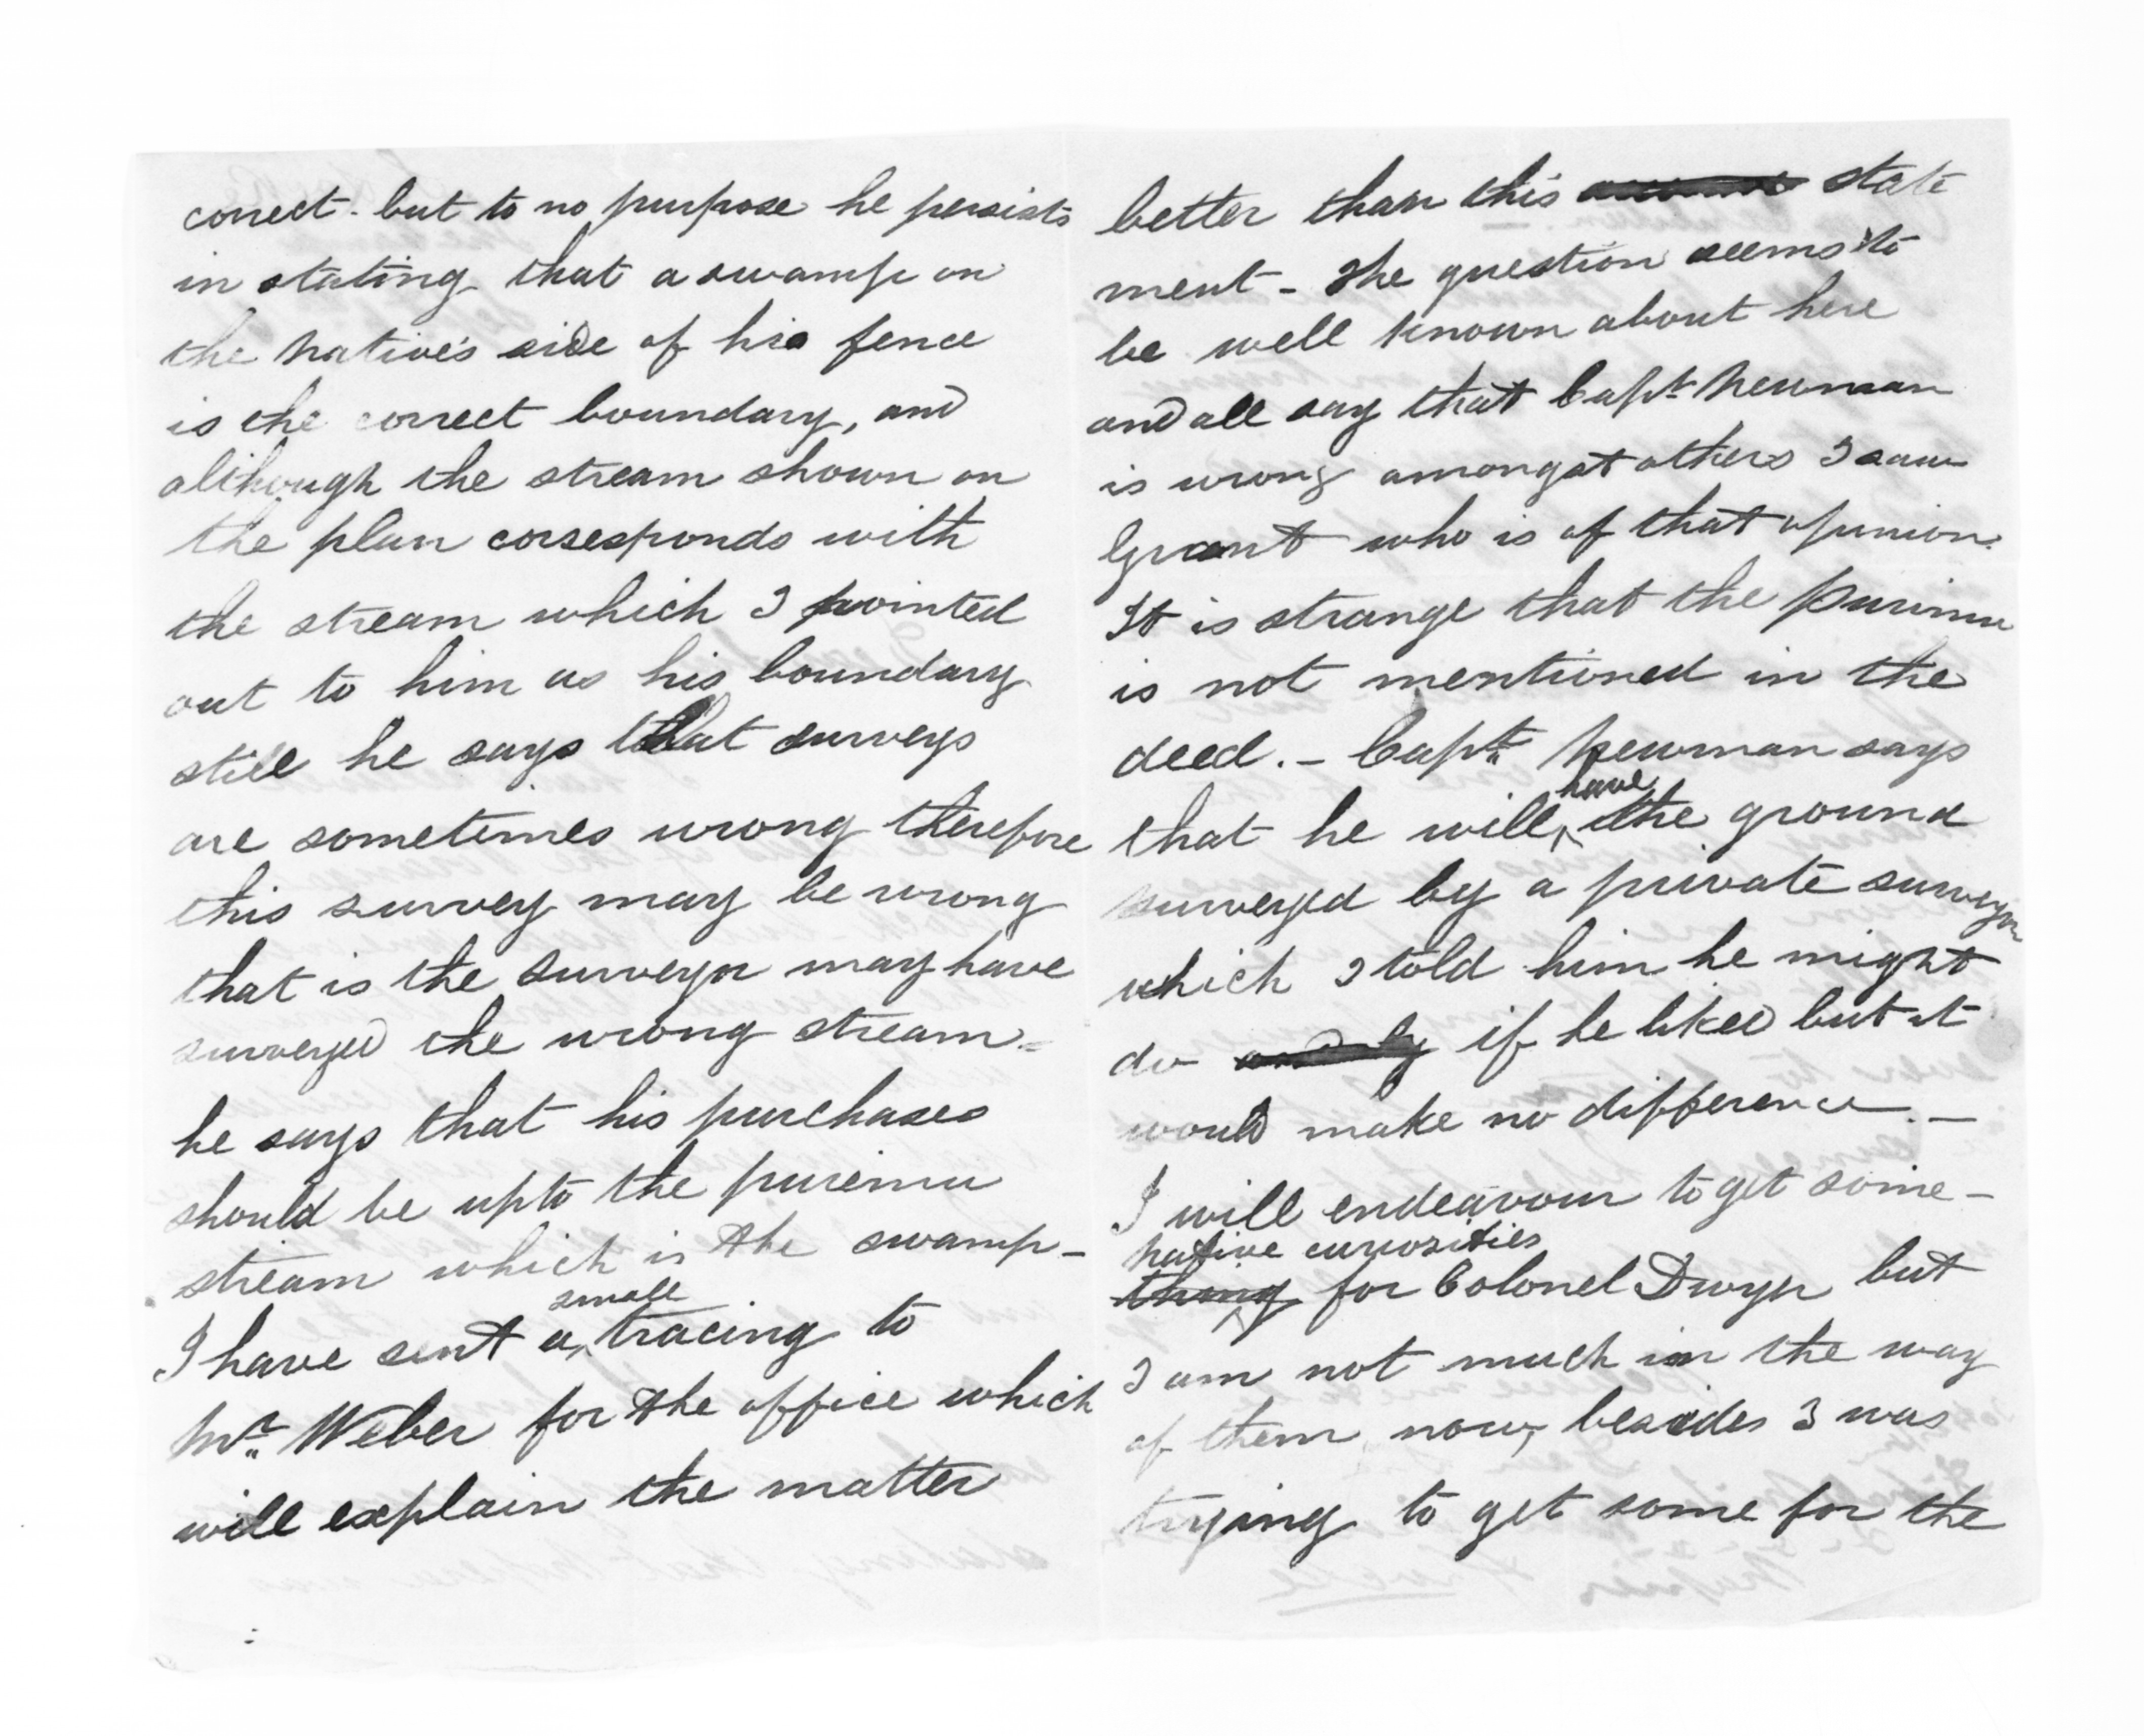 correct - but to no purpose he persists
in stating that a swamp on
the native's side of his fence
is the correct boundary, and
although the stream shown on
the plan corresponds with
the stream which I pointed
out to him as his boundary
still he says that surveys
are sometimes wrong therefore
this survey may be wrong
that is the surveyor may have
surveyed the wrong stream -
he says that his purchases
should be up to the purimu
stream which is the swamp -
small
I have sent a tracing to
Mr. Weber for the office which
will explain the matter
better than this state
ment - The question seems to
be well known about here
and all say that Capt. Newman
is wrong amongst others I saw
Grant who is of that opinion.
It is strange that the Purimu
is not mentioned in the
deed. - Capt. Newman says
have
that he will the ground
surveyed by a private surveyor
which I told him he might
do if he liked but it
would make no difference. -
I will endeavour to get some -
native curiosities
thing for Colonel Dwyer but
I am not much in the way
of them now, besides I was
trying to get some for the